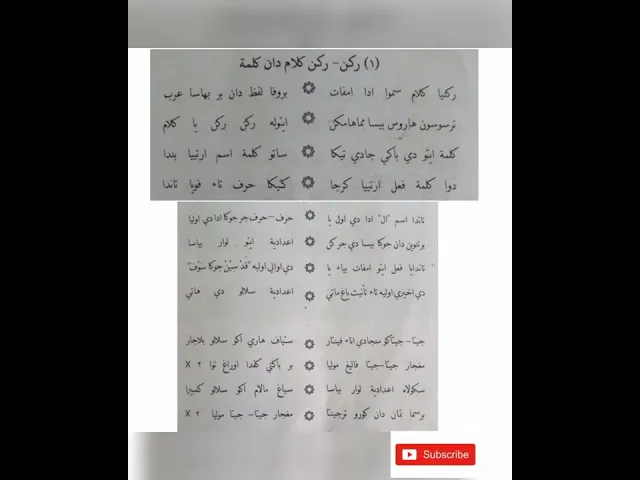 (١) ركن- ركن كلام دان كلمة
ركنيا كلام سموا ادا امفات ۞ بروفا لفظ دان بر بهاسا عرب
ترسوسون هاروس بيسا مماهامكن ۞ ايتوله ركن ركن يا كلام
كلمة ايتو دي باكي جادي تيكا ۞ ساتو كلمة اسم ارتييا بندا
دوا كلمة فعل ارتييا كرجا ۞ كتيكا حرف تاء فويا تاندا
تاندا اسم "ال" ادا دي اول يا ۞ حرف-حرف جر جوكا ادا دي اوليا
برتنوين دان جوكا بيسا دي جر كن ۞ اعدادية ايتو لوار بياسا
تاندايا فعل ايتو امفات بياء يا ۞ دي اوالي اوليه "قَدْ سَيَنْ جوكا سَوْفَ"
دي اخيري اوليه تاء تأنيث ياغ ماتي ۞ اعدادية سلالو دي هاتي
جيتا- جيتاكو منجادي اناء فينتار ۞ ستياف هاري اكو سلالو بلاجار
مغجار جيتا-جيتا فاليغ موليا ۞ بر باكتي كفدا اوراغ توا X ٢
سكولاه اعدادية لوار بياسا ۞ سياغ مالام اكو سلالو كمبيرا
برسما تمان دان كورو ترجينتا ۞ مغجار جيتا- جيتا موليا X ٢
Subscribe